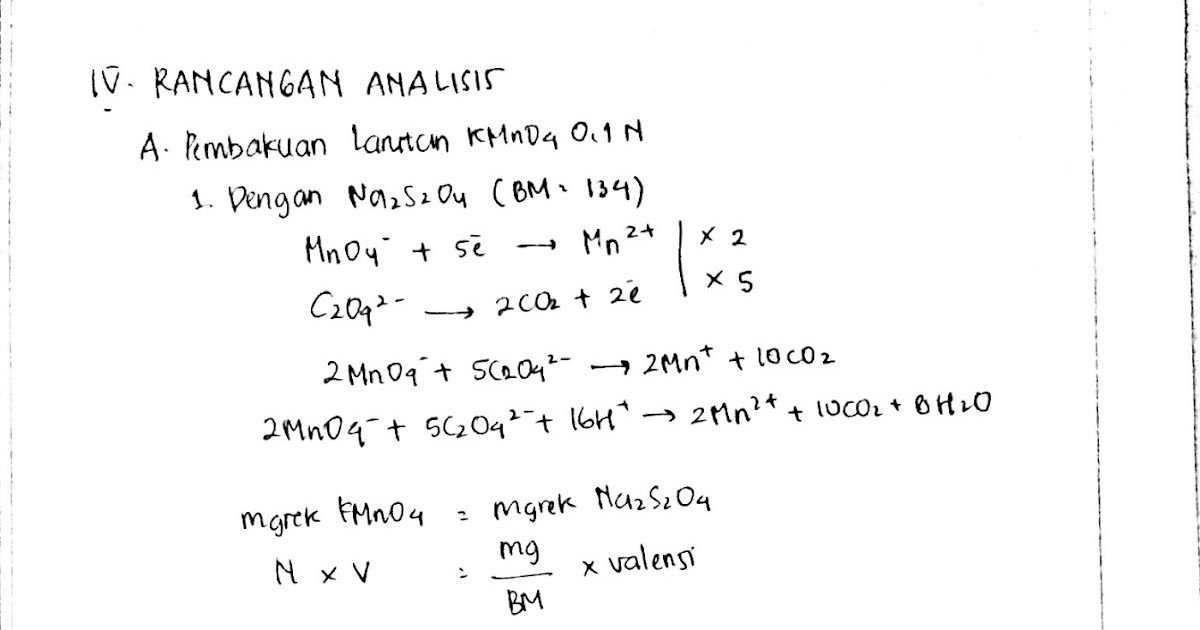 IV. RANCANGAN ANALISIS
A. Pembakuan Larutan KMnO4 0.1 N
1. Dengan Na2S2O4 (BM = 134)
MnO4⁻ + 5ē → Mn²⁺ | × 2
C2O4²⁻ → 2CO2 + 2ē | × 5
2MnO4⁻ + 5C2O4²⁻ → 2Mn⁺ + 10CO2
2MnO4⁻ + 5C2O4²⁻ + 16H⁺ → 2Mn²⁺ + 10CO2 + 8H2O
mgrek KMnO4 = mgrek Na2S2O4
N × V = mg/BM × valensi